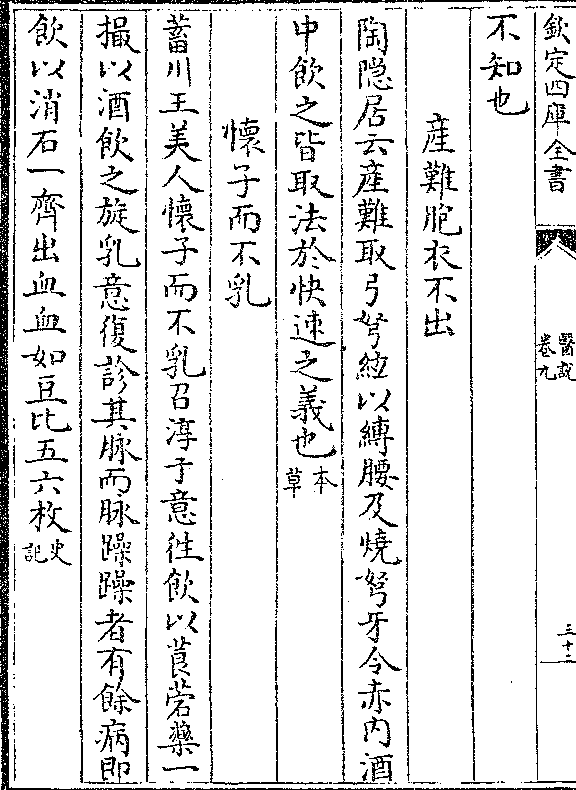 欽定四庫全書
醫說
卷九
三十二
不知也
產難胞衣不出
陶隱居云產難取弓弩絃以縛腰及燒弩牙令赤内酒
中飲之皆取法於快速之義也本草
懷子而不乳
蓄川王美人懷子而不乳召淳于意徃飲以莨菪藥一
撮以酒飲之旋乳意復診其脉而脉躁躁者有餘病即
飲以消石一齊出血血如豆比五六枚史記